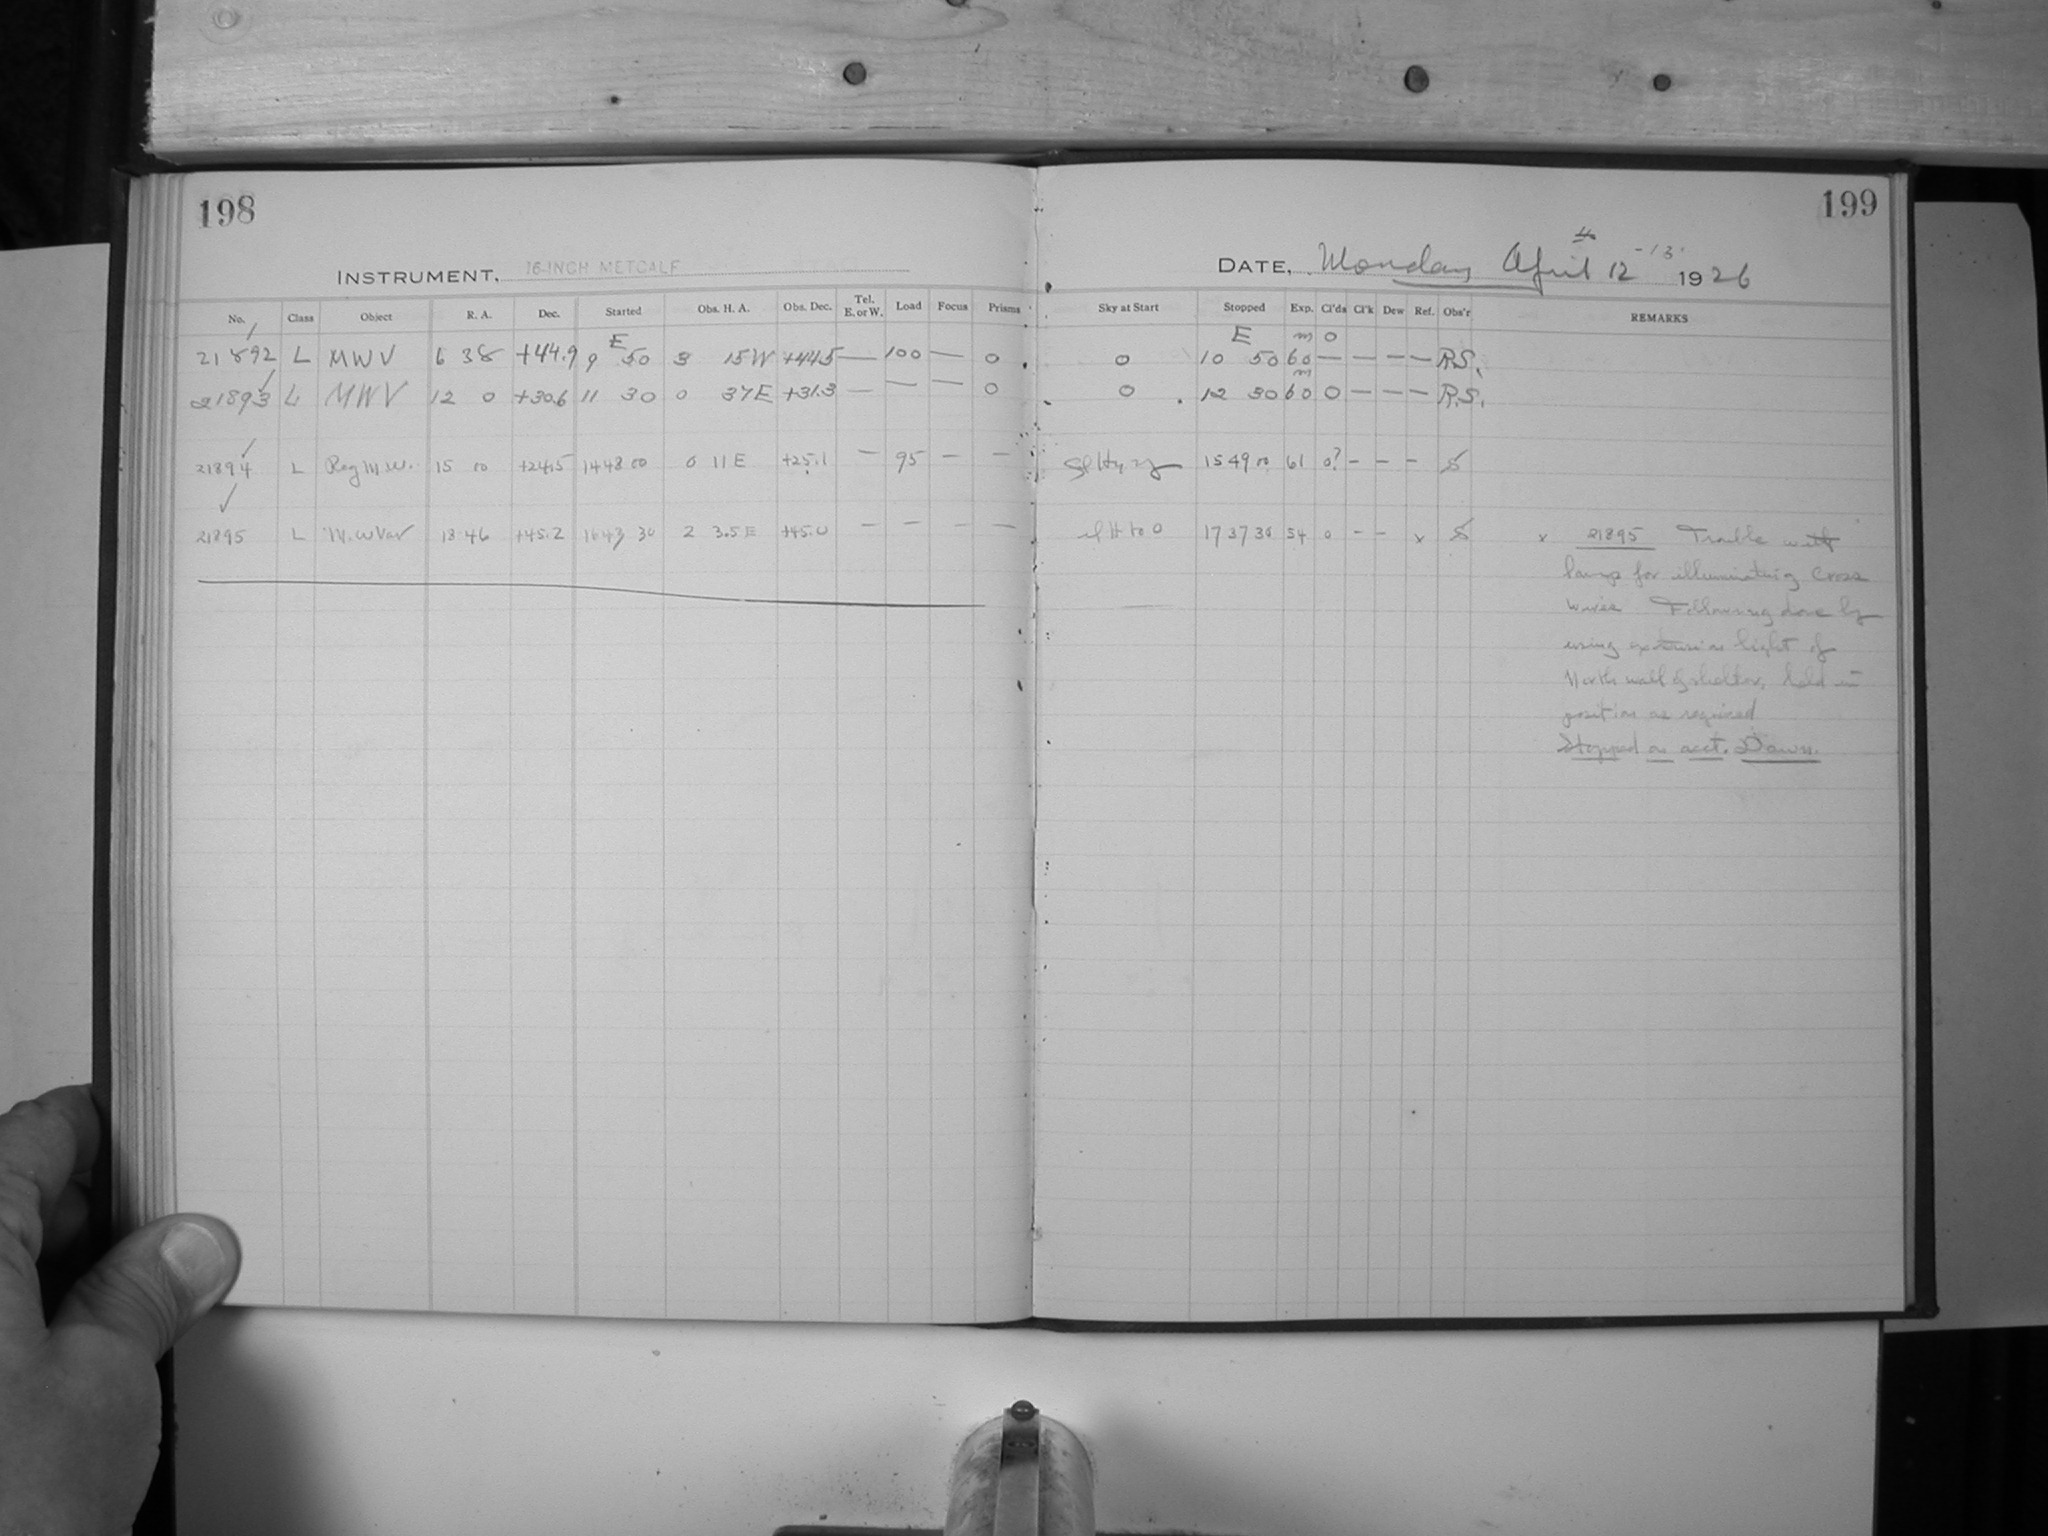 198
199
INSTRUMENT, 16-INCH METCALF
DATE, Monday April 12 -13. 1926
No. Class Object R. A. Dec. Started Obs. H. A. Obs. Dec. Tel. E. or W. Load Focus Prisms Sky at Start Stopped Exp. Cl'ds Cl'k Dew Ref. Obs'r REMARKS
E E m O
21892 L MWV 6 38 +44.9 9 50 3 15W +44.5 — 100 — O O 10 50 60 — — — — R.S.
m
21893 L MWV 12 0 +30.6 11 30 0 37E +31.3 — — — O O 12 30 60 O — — — R.S.
21894 L Reg M.W. 15 00 +24.5 14 48 00 0 11 E +25.1 — 95 — — 15 49 00 61 0? – – –
21895 L M.W Var 18 46 +45.2 16 43 30 2 3.5 E +45.0 — — — — sl H to 0 17 37 30 54 0 – – x
x 21895 Trouble with
lamp for illuminating cross
wires Following done by
using extension light of
North wall of shelter, held in
position as required
Stopped on acct. Dawn.